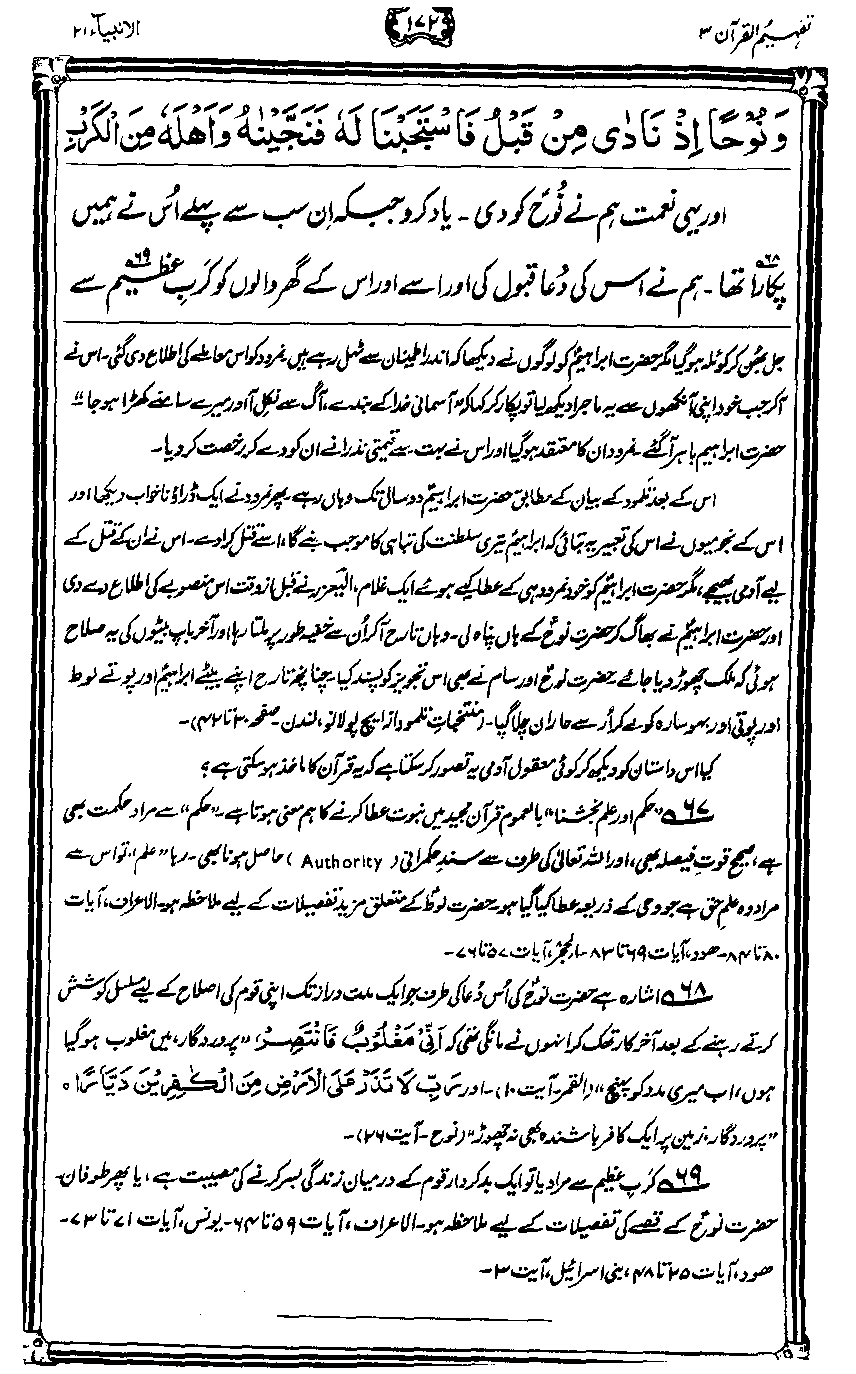 تفہیم القرآن ۳
۱۷۲
الانبیاء ۲۱
وَنُوْحًا اِذْ نَادٰى مِنْ قَبْلُ فَاسْتَجَبْنَا لَهٗ فَنَجَّيْنٰهُ وَاَهْلَهٗ مِنَ الْكَرْبِ
اور یہی نعمت ہم نے نُوحؑ کو دی۔ یاد کرو جبکہ اِن سب سے پہلے اُس نے ہمیں
پکارا ۶۸؎ تھا۔ ہم نے اس کی دُعا قبول کی اور اسے اور اس کے گھر والوں کو کَربِ عظیم ۶۹؎ سے
جل بھن کر کوئلہ ہو گیا مگر حضرت ابراہیمؑ کو لوگوں نے دیکھا کہ اندر اطمینان سے ٹہل رہے ہیں۔ نمرود کو اس معاملے کی اطلاع دی گئی۔ اس نے
آکر جب خود اپنی آنکھوں سے یہ ماجرا دیکھ لیا تو پکار کر کہا کہ ”آسمانی خدا کے بندے، آگ سے نکل آ اور میرے سامنے کھڑا ہو جا“
حضرت ابراہیم باہر آگئے۔ نمرود ان کا معتقد ہو گیا اور اس نے بہت سے قیمتی نذرانے ان کو دے کر رخصت کر دیا۔
اس کے بعد تلمود کے بیان کے مطابق حضرت ابراہیمؑ دو سال تک وہاں رہے۔ پھر نمرود نے ایک ڈراؤنا خواب دیکھا اور
اس کے نجومیوں نے اس کی تعبیر یہ بتائی کہ ابراہیمؑ تیری سلطنت کی تباہی کا موجب بنے گا، اسے قتل کرا دے۔ اس نے ان کے قتل کے
لیے آدمی بھیجے، مگر حضرت ابراہیمؑ کو خود نمرود ہی کے عطا کیے ہوئے ایک غلام، الیعزر نے قبل از وقت اس منصوبے کی اطلاع دے دی
اور حضرت ابراہیمؑ نے بھاگ کر حضرت نوحؑ کے ہاں پناہ لی۔ وہاں تارح آکر اُن سے خفیہ طور پر ملتا رہا اور آخر باپ بیٹوں کی یہ صلاح
ہوئی کہ ملک چھوڑ دیا جائے۔ حضرت نوحؑ اور سام نے بھی اس تجویز کو پسند کیا۔ چنانچہ تارح اپنے بیٹے ابراہیمؑ اور پوتے لوط
اور پوتی اور بہو سارہ کو لے کر اُر سے حاران چلا گیا۔ (منتخباتِ تلمود از ایچ پولانو، لندن۔ صفحہ ۳۰ تا ۴۲)۔
کیا اس داستان کو دیکھ کر کوئی معقول آدمی یہ تصور کر سکتا ہے کہ یہ قرآن کا ماخذ ہو سکتی ہے؟
۶۷؎ ”حکم اور علم بخشنا“ بالعموم قرآن مجید میں نبوت عطا کرنے کا ہم معنی ہوتا ہے۔ ”حکم“ سے مراد حکمت بھی
ہے، صحیح قوتِ فیصلہ بھی، اور اللہ تعالیٰ کی طرف سے سندِ حکمرانی (Authority) حاصل ہونا بھی۔ رہا ”علم“، تو اس سے
مراد وہ علمِ حق ہے جو وحی کے ذریعہ عطا کیا گیا ہو۔ حضرت لوطؑ کے متعلق مزید تفصیلات کے لیے ملاحظہ ہو۔ الاعراف، آیات
۸۰ تا ۸۴۔ ھود، آیات ۶۹ تا ۸۳۔ الحجر، آیات ۵۷ تا ۷۶۔
۶۸؎ اشارہ ہے حضرت نوحؑ کی اُس دُعا کی طرف جو ایک مدت دراز تک اپنی قوم کی اصلاح کے لیے مسلسل کوشش
کرتے رہنے کے بعد آخر کار تھک کر انہوں نے مانگی تھی کہ اَنِّيْ مَغْلُوْبٌ فَانْتَصِرْ، ”پروردگار، میں مغلوب ہو گیا
ہوں، اب میری مدد کو پہنچ“ (القمر۔ آیت ۱۰)۔ اور رَبِّ لَا تَذَرْ عَلَى الْاَرْضِ مِنَ الْكٰفِرِيْنَ دَيَّارًا ہ
”پروردگار، زمین پر ایک کافر باشندہ بھی نہ چھوڑ“ (نوح۔ آیت ۲۶)۔
۶۹؎ کَربِ عظیم سے مراد یا تو ایک بدکردار قوم کے درمیان زندگی بسر کرنے کی مصیبت ہے، یا پھر طوفان۔
حضرت نوحؑ کے قصے کی تفصیلات کے لیے ملاحظہ ہو۔ الاعراف، آیات ۵۹ تا ۶۴۔ یونس، آیات ۷۱ تا ۷۳۔
ھود، آیات ۲۵ تا ۴۸، بنی اسرائیل، آیت ۳۔